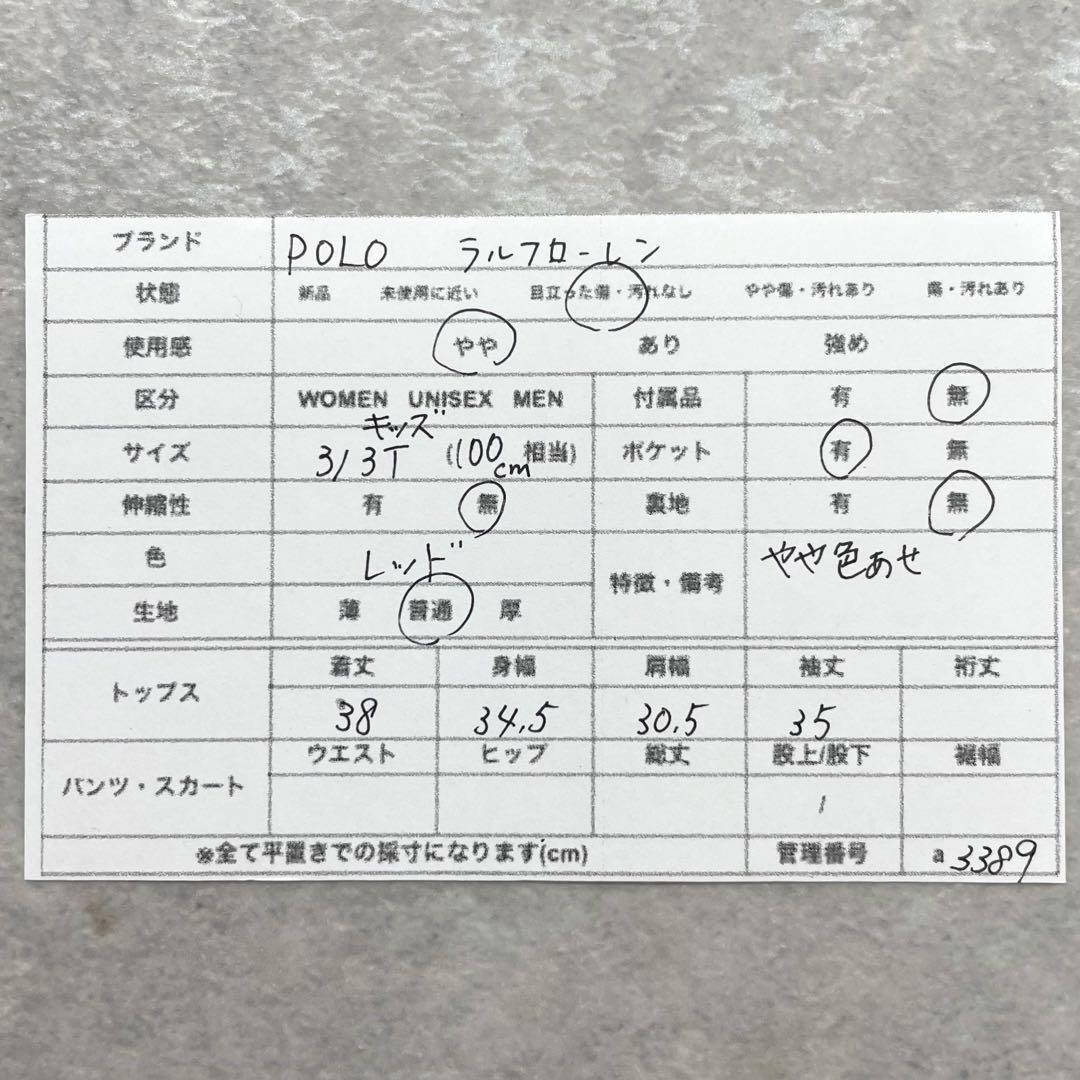 ブランド POLO ラルフローレン
状態 新品 未使用に近い 目立った傷・汚れなし やや傷・汚れあり 傷・汚れあり
使用感 やや あり 強め
区分 WOMEN UNISEX MEN 付属品 有 無
キッズ
サイズ 3/3T (100cm 相当) ポケット 有 無
伸縮性 有 無 裏地 有 無
色 レッド 特徴・備考 やや色あせ
生地 薄 普通 厚
トップス 着丈 身幅 肩幅 袖丈 裄丈
38 34.5 30.5 35
パンツ・スカート ウエスト ヒップ 総丈 股上/股下 裾幅
/
※全て平置きでの採寸になります(cm) 管理番号 a 3389